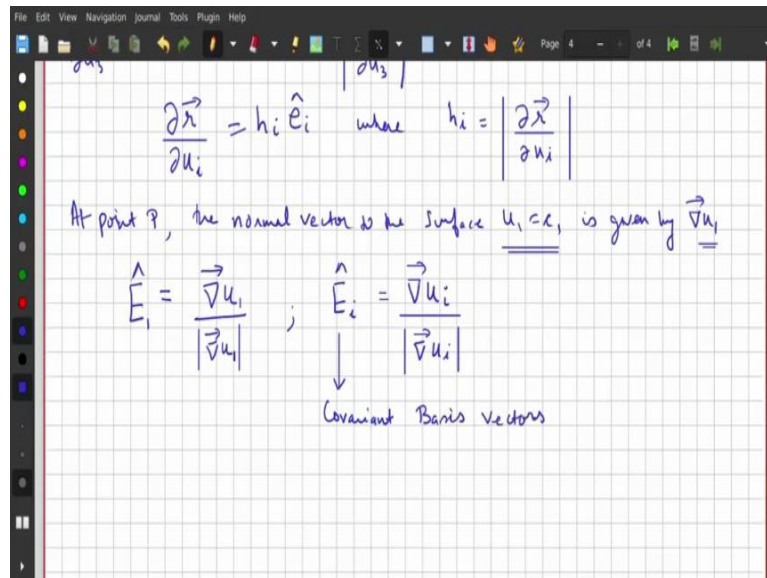 File Edit View Navigation Journal Tools Plugin Help
Page 4 of 4
∂u₃ |∂u₃|
∂r⃗/∂uᵢ = hᵢ êᵢ where hᵢ = |∂r⃗/∂uᵢ|
At point P, the normal vector to the surface u₁ = c₁ is given by ∇⃗u₁
Ê₁ = ∇⃗u₁/|∇⃗u₁| ; Êᵢ = ∇⃗uᵢ/|∇⃗uᵢ|
Covariant Basis vectors